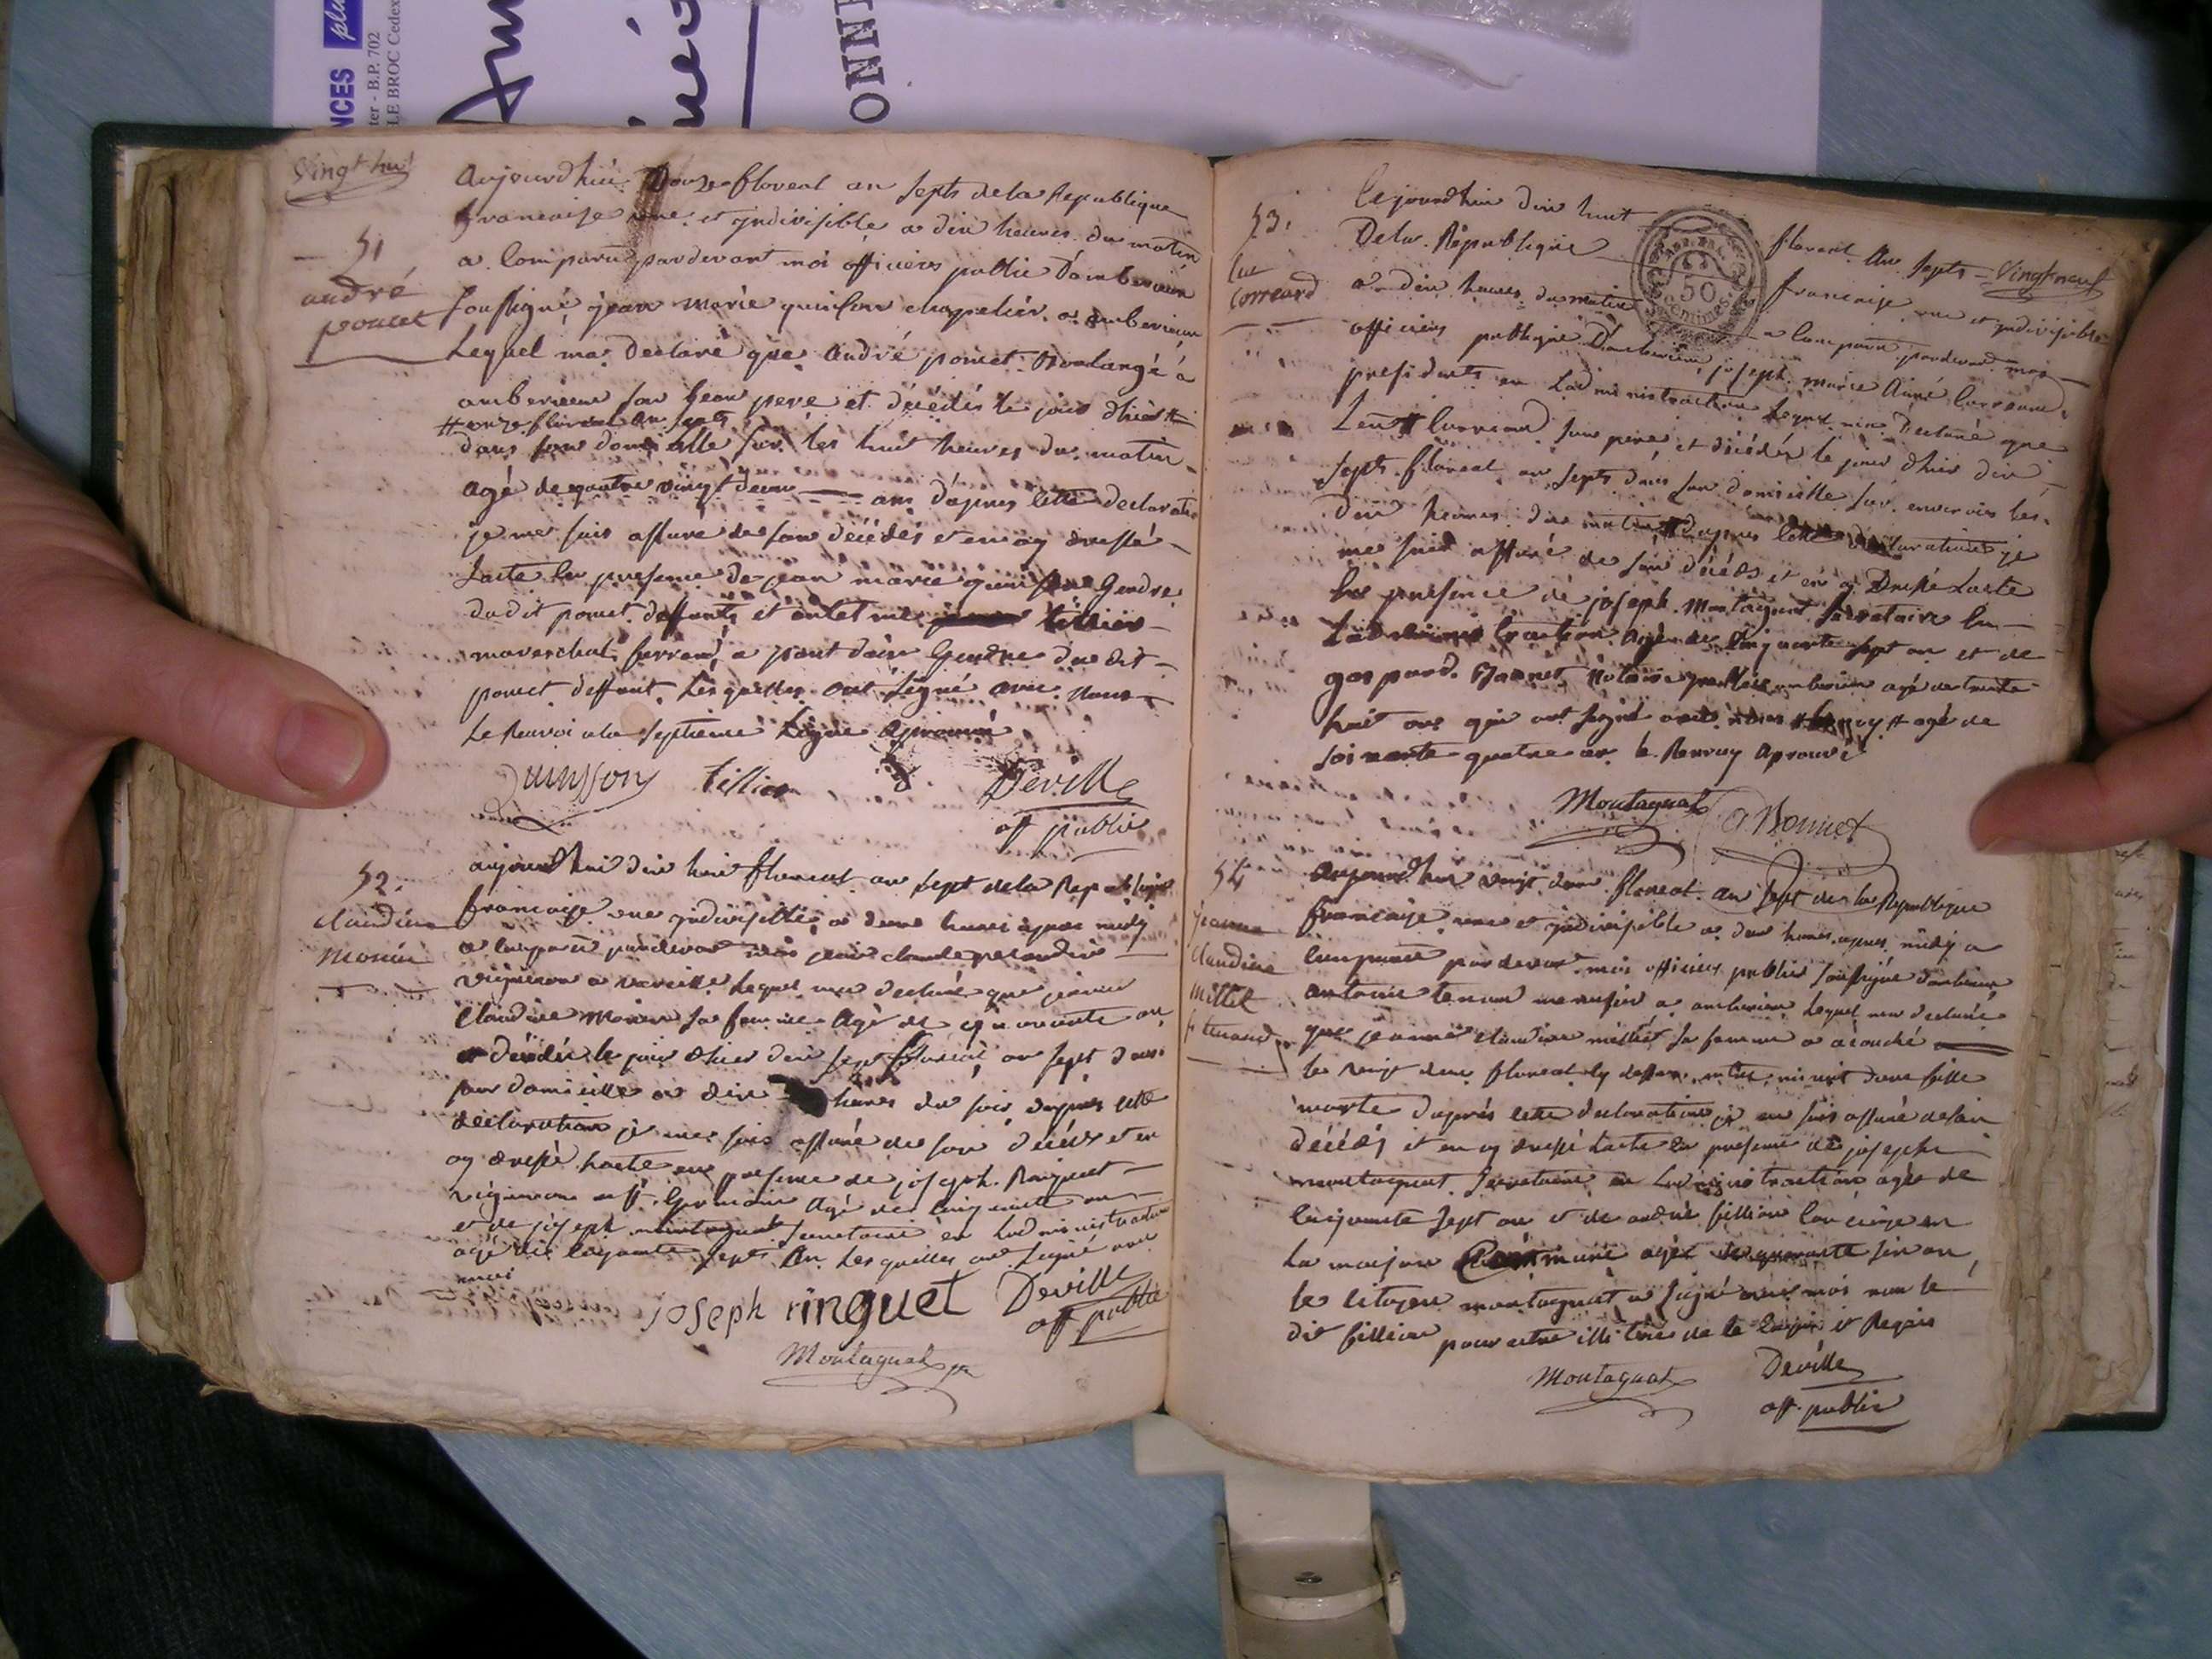 NCES plu
ter - B.P. 702
LE BROC Cedex
ONN
vingt hui
51
andré
poncet
aujourdhui Douze floreal an septs de la Republique
francaise une et yndivisible a dix heures du matin
a Comparu pardevant moi officiers public Damberieux
soussigné, jean marie quinson chapelier a amberieux
Lequel ma Declaré que andré poncet Boulangé a
amberieux son beau pere et décédés le jour dhier #
# onze floreal an septs
dans son domicille sur les huit heures du matin
agé de quatre vingt deux ans dapres cette declaration
je me suis assuré de son décédés et en ay dressé
Lacte en presence de jean marie quinson Gendre
dudit poncet deffunts et antelme tillier
mareschal ferrand a pont dain Gendre du dit
poncet deffunt Lesquelles ont signé avec nous
Le Renvoi a la septieme Ligne aprouvé
Quinsson tillier Deville
off public
52.
claudine
monin
aujourdhui dix huit floreal an sept de la Republique
francaise une yndivisible a deux heures apres midy
a comparu pardevant moi jean claude
vigneron a vareille Lequel ma declaré que jeanne
claudine monin sa femme agé de quarante an
et décédée le jour dhier dix sept floreal an sept dans
son domicille a dix heures du soir dapres cette
declaration je me suis assuré de son décéds et en
ay dressé lacte en presence de joseph Ringuet
vigneron a st Germain agé de cinquante an
et de joseph montagnat secretaire en Ladministration
agé de cinquante septs An Lesquelles ont signé avec
nous
joseph ringuet Deville
off public
Montagnat
53.
luc
Correard
Cejourdhui dix huit floreal An septs Vingt neuf
De la République francaise une et yndivisible
50
centimes
a dix heures du matin a Comparu pardevant moi
officiers publique Damberieux, joseph marie Aimé Correard
presidents en Ladministration Lequel ma Declaré que
Luc # Correard son pere, et décédés le jour dhier dix
septs floreal an septs dans son domicille sur environ les
Dix heures du matin dapres cette declaration je
me suis assuré de son décéds et en ay Dressé Lacte
En presence de joseph Montagnat secretaire en
Ladministration agé de Cinquante sept an et de
gaspard Bonnet Notaire public amberieux agé de trente
huit ans qui ont signé avec nous # agé de
soixante quatre an le Renvoy aprouvé
Montagnat Bonnet
54
jeanne
claudine
millet
f tenand
aujourdhui vingt deux floreal an sept de la Republique
francaise une et yndivisible a deux heures apres midy a
comparu pardevant moi officiers public soussigné damberieux
antoine tenand menusier a amberieux Lequel ma declaré
que jeanne claudine millet sa femme a acouché
le vingt deux floreal minuit dune fille
morte dapres cette declaration je me suis assuré de son
décédés et en ay dressé Lacte en presence de joseph
montagnat secretaire en Ladministration agé de
cinquante sept an et de andré billion concierge en
La maison Commune agé de quarante six an,
le citoyen montagnat a signé avec moi non le
dit billion pour etre illitéré de ce enquis et Requis
Montagnat Deville
off. public